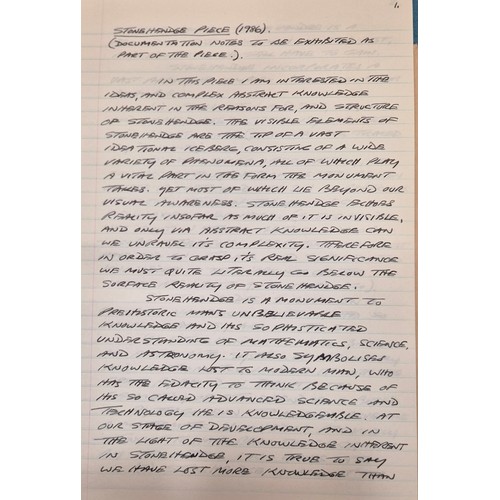 1.
STONEHENDGE PIECE (1986).
(DOCUMENTATION NOTES TO BE EXHIBITED AS
PART OF THE PIECE.).
IN THIS PIECE I AM INTERESTED IN THE
IDEAS, AND COMPLEX ABSTRACT KNOWLEDGE
INHERENT IN THE REASONS FOR, AND STRUCTURE
OF STONEHENDGE. THE VISIBLE ELEMENTS OF
STONEHENDGE ARE THE TIP OF A VAST
IDEATIONAL ICEBERG, CONSISTING OF A WIDE
VARIETY OF PHENOMENA, ALL OF WHICH PLAY
A VITAL PART IN THE FORM THE MONUMENT
TAKES. YET MOST OF WHICH LIE BEYOND OUR
VISUAL AWARENESS. STONEHENDGE ECHOES
REALITY INSOFAR AS MUCH OF IT IS INVISIBLE,
AND ONLY VIA ABSTRACT KNOWLEDGE CAN
WE UNRAVEL IT'S COMPLEXITY. THEREFORE
IN ORDER TO GRASP IT'S REAL SIGNIFICANCE
WE MUST QUITE LITERALLY GO BELOW THE
SURFACE REALITY OF STONEHENDGE.
STONEHENDGE IS A MONUMENT TO
PREHISTORIC MANS UNBELIEVABLE
KNOWLEDGE AND HIS SOPHISTICATED
UNDERSTANDING OF MATHEMATICS, SCIENCE,
AND ASTRONOMY. IT ALSO SYMBOLISES
KNOWLEDGE LOST TO MODERN MAN, WHO
HAS THE EDACITY TO THINK BECAUSE OF
HIS SO CALLED ADVANCED SCIENCE AND
TECHNOLOGY HE IS KNOWLEDGEABLE. AT
OUR STAGE OF DEVELOPMENT, AND IN
THE LIGHT OF THE KNOWLEDGE INHERENT
IN STONEHENDGE, IT IS TRUE TO SAY
WE HAVE LOST MORE KNOWLEDGE THAN